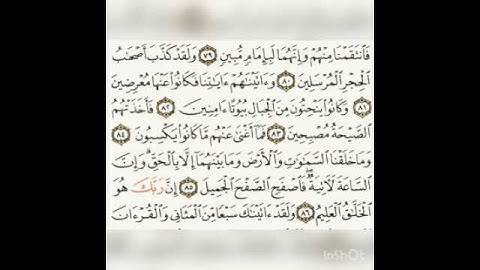 فَٱنتَقَمۡنَا مِنۡهُمۡ وَإِنَّهُمَا لَبِإِمَامٖ مُّبِينٖ ٧٩ وَلَقَدۡ كَذَّبَ أَصۡحَٰبُ
ٱلۡحِجۡرِ ٱلۡمُرۡسَلِينَ ٨٠ وَءَاتَيۡنَٰهُمۡ ءَايَٰتِنَا فَكَانُواْ عَنۡهَا مُعۡرِضِينَ
٨١ وَكَانُواْ يَنۡحِتُونَ مِنَ ٱلۡجِبَالِ بُيُوتًا ءَامِنِينَ ٨٢ فَأَخَذَتۡهُمُ
ٱلصَّيۡحَةُ مُصۡبِحِينَ ٨٣ فَمَآ أَغۡنَىٰ عَنۡهُم مَّا كَانُواْ يَكۡسِبُونَ ٨٤
وَمَا خَلَقۡنَا ٱلسَّمَٰوَٰتِ وَٱلۡأَرۡضَ وَمَا بَيۡنَهُمَآ إِلَّا بِٱلۡحَقِّۗ وَإِنَّ
ٱلسَّاعَةَ لَأٓتِيَةٞۖ فَٱصۡفَحِ ٱلصَّفۡحَ ٱلۡجَمِيلَ ٨٥ إِنَّ رَبَّكَ هُوَ
ٱلۡخَلَّٰقُ ٱلۡعَلِيمُ ٨٦ وَلَقَدۡ ءَاتَيۡنَٰكَ سَبۡعٗا مِّنَ ٱلۡمَثَانِي وَٱلۡقُرۡءَانَ
InShOt